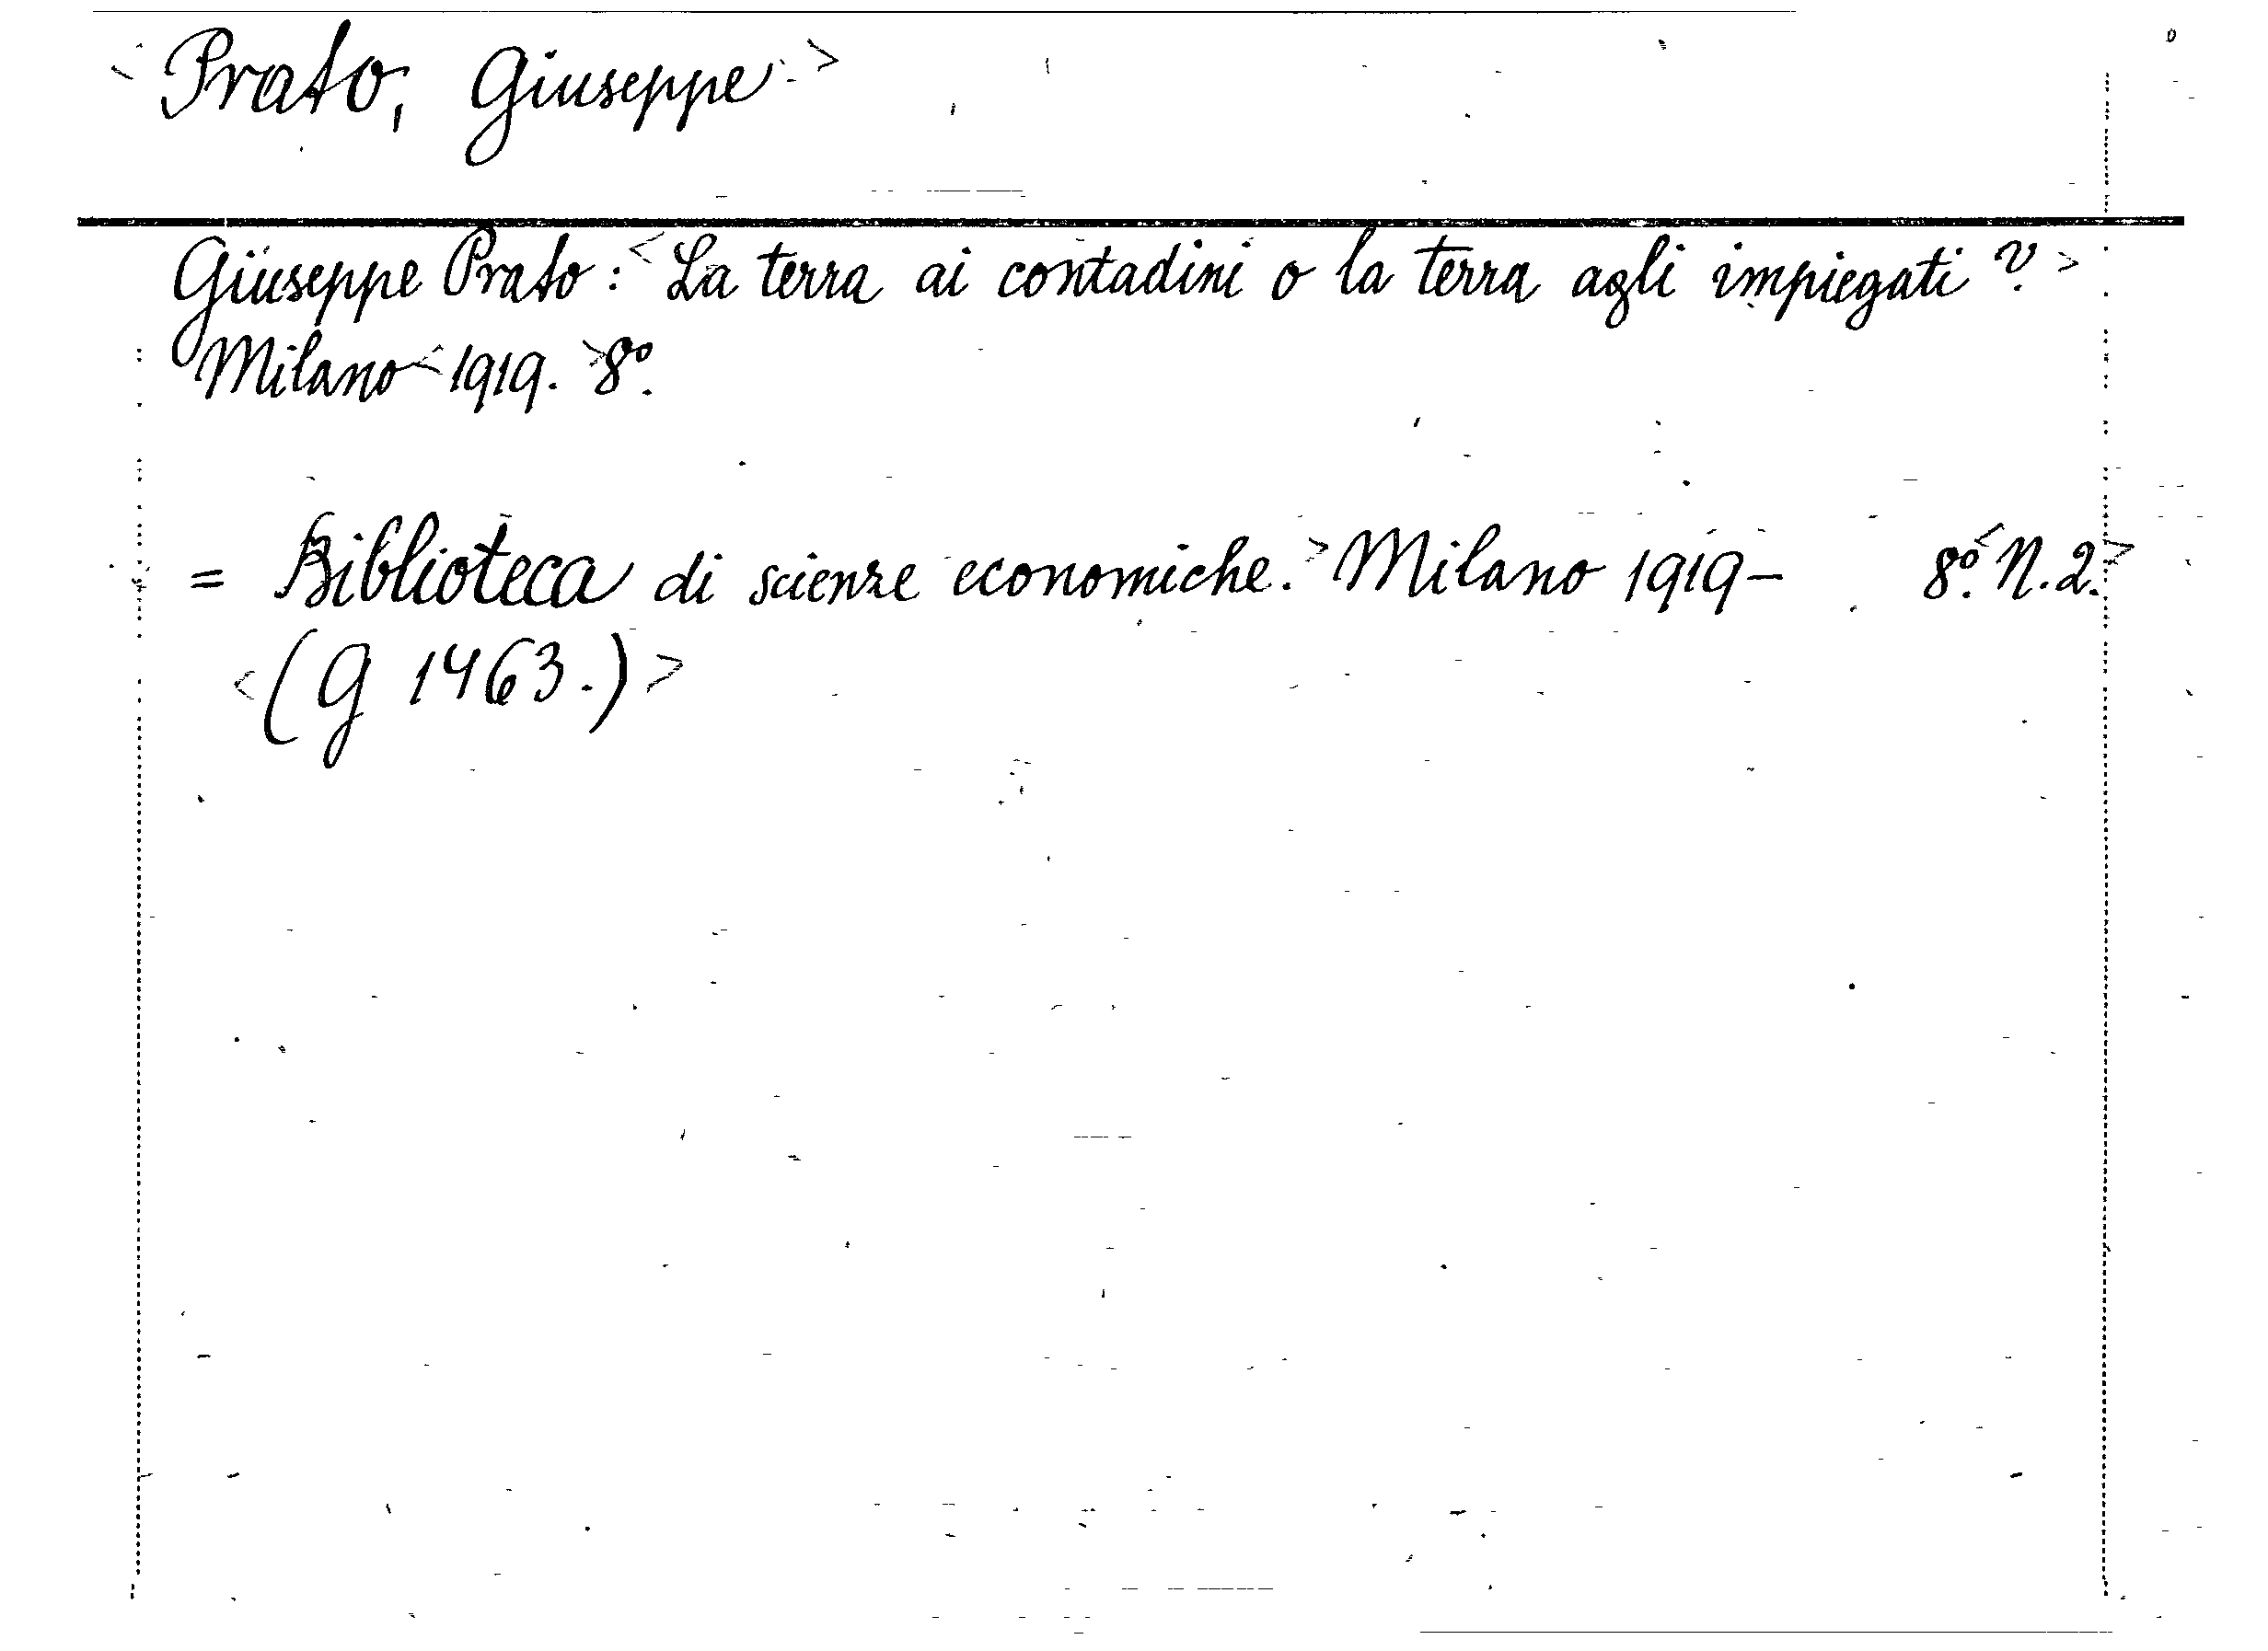 < Prato, Giuseppe. >
Giuseppe Prato: < La terra ai contadini o la terra agli impiegati? >
Milano < 1919. > 8º.
< = Biblioteca di scienze economiche. > Milano 1919– 8º. < N. 2. >
< (G 1463.) >